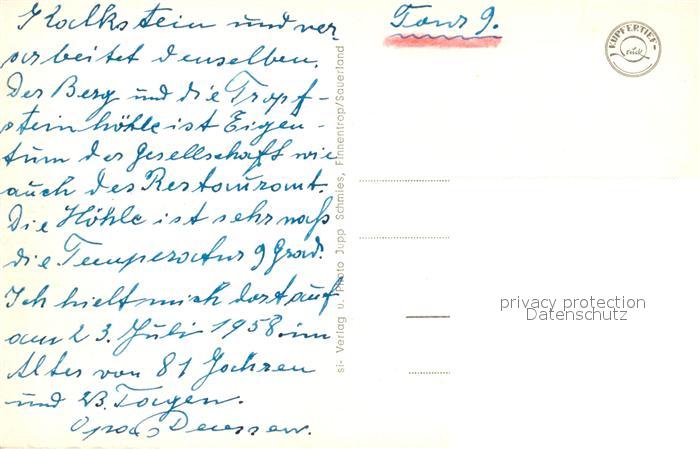 Kalkstein und ver-
arbeitet denselben.
Der Berg und die Tropf-
steinhöhle ist Eigen-
tum der Gesellschaft wie
auch des Restaurant.
Die Höhle ist sehr naß
die Temperatur 9 Grad.
Ich hielt mich dort auf
am 23. Juli 1958. im
Alter von 81 Jahren
und 23. Tagen.
Opa
si- Verlag u. Photo Jupp Schmies, Finnentrop/Sauerland
Tour 9.
KUPFERTIEF-
druck
privacy protection
Datenschutz